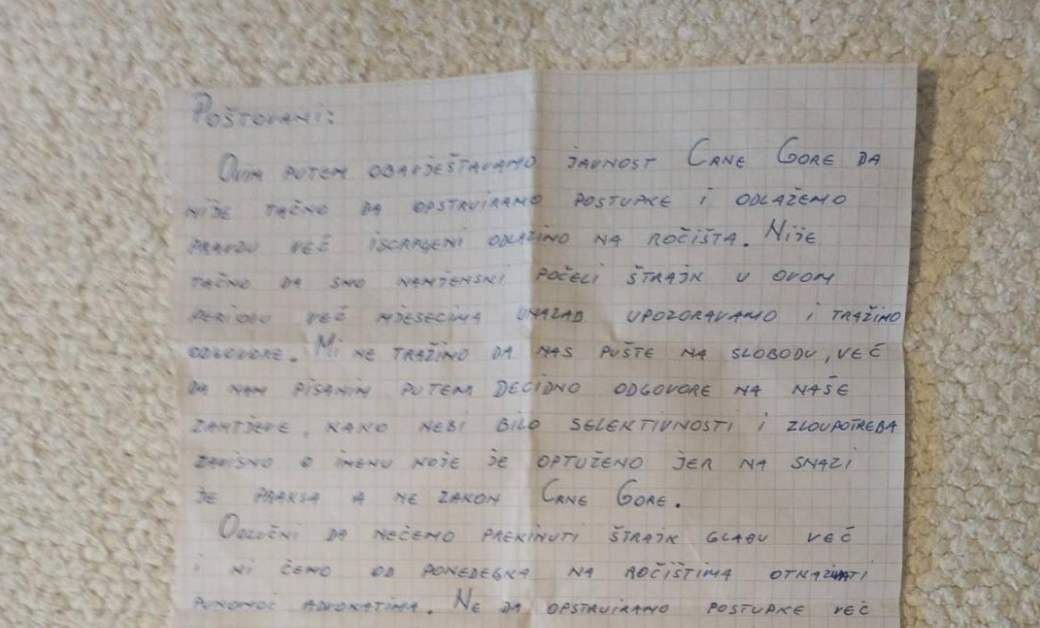 Poštovani:
Ovim putem obavještavamo javnost Crne Gore da
nije tačno da opstruiramo postupke i odlažemo
pravdu već iscrpljeni odlazimo na ročišta. Nije
tačno da smo namjenski počeli štrajk u ovom
periodu već mjesecima unazad upozoravamo i tražimo
odgovore. Mi ne tražimo da nas pušte na slobodu, već
da nam pisanim putem decidno odgovore na naše
zahtjeve, kako nebi bilo selektivnosti i zloupotreba
zavisno o imenu koje je optuženo jer na snazi
je praksa a ne zakon Crne Gore.
Odlučni da nećemo prekinuti štrajk glađu već
i mi ćemo od ponedeljka na ročištima otkazati
punomoć advokatima. Ne da opstruiramo postupke već